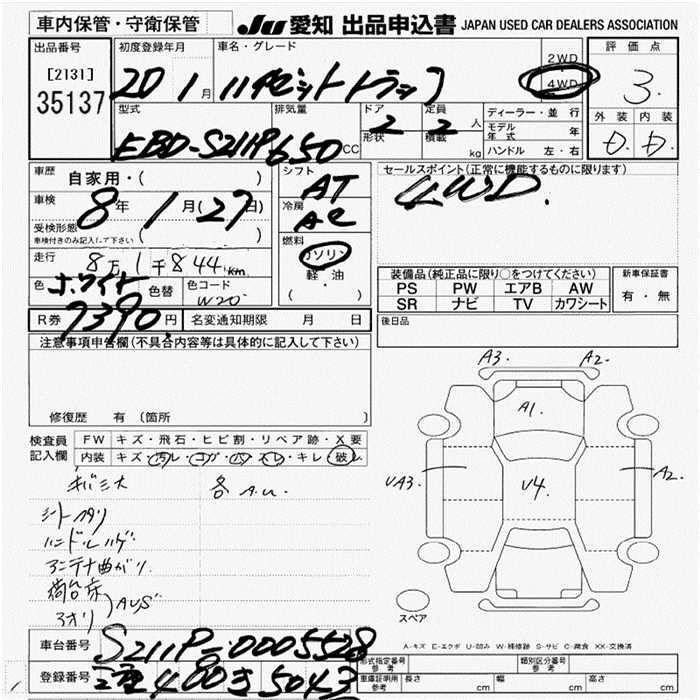 車内保管・守衛保管
JU 愛知 出品申込書 JAPAN USED CAR DEALERS ASSOCIATION
出品番号 初度登録年月 車名・グレード 2WD 評価点
[2131] 20 1月 ハイゼットトラック 4WD 3.
35137 外装 内装
型式 排気量 ドア 定員 ディーラー・並行
EBD-S211P 650CC 2 2人 モデル年式 年 D. D.
形状 積載 kg ハンドル 左・右
車歴 自家用・( ) シフト AT セールスポイント(正常に機能するものに限ります)
車検 8年 1月(27日) 冷房 AC 4WD.
受検形態 ( )
車検付きのみ記入して下さい 燃料 ガソリン
走行 8万1千844km 軽・油
装備品(純正品に限り○をつけてください) 新車保証書
色 ホワイト 色替 色コード W20 ( ・ ) PS PW エアB AW 有・無
SR ナビ TV カワシート
R券 7390円 名変通知期限 月 日 後日品
注意事項申告欄(不具合内容等は具体的に記入して下さい)
A3. A2.
A1.
修復歴 有 (箇所
検査員 FW キズ・飛石・ヒビ割・リペア跡・X要
記入欄 内装 キズ・汚レ・コゲ・穴・スレ・キレ・破レ
キバミ大 各A.U.
UA3. U4. A2.
シートヘタリ
ハンドルハゲ
アンテナ曲がり
荷台床
アオリ AUS
スペア
A-キズ E-エクボ U-凹み W-補修跡 S-サビ C-腐食 XX-交換済
車台番号 S211P-0005528
形式指定番号 参考 類別区分番号 参考
登録番号 480 5043
車庫証明用 参考 長さ cm 幅 cm 高さ cm